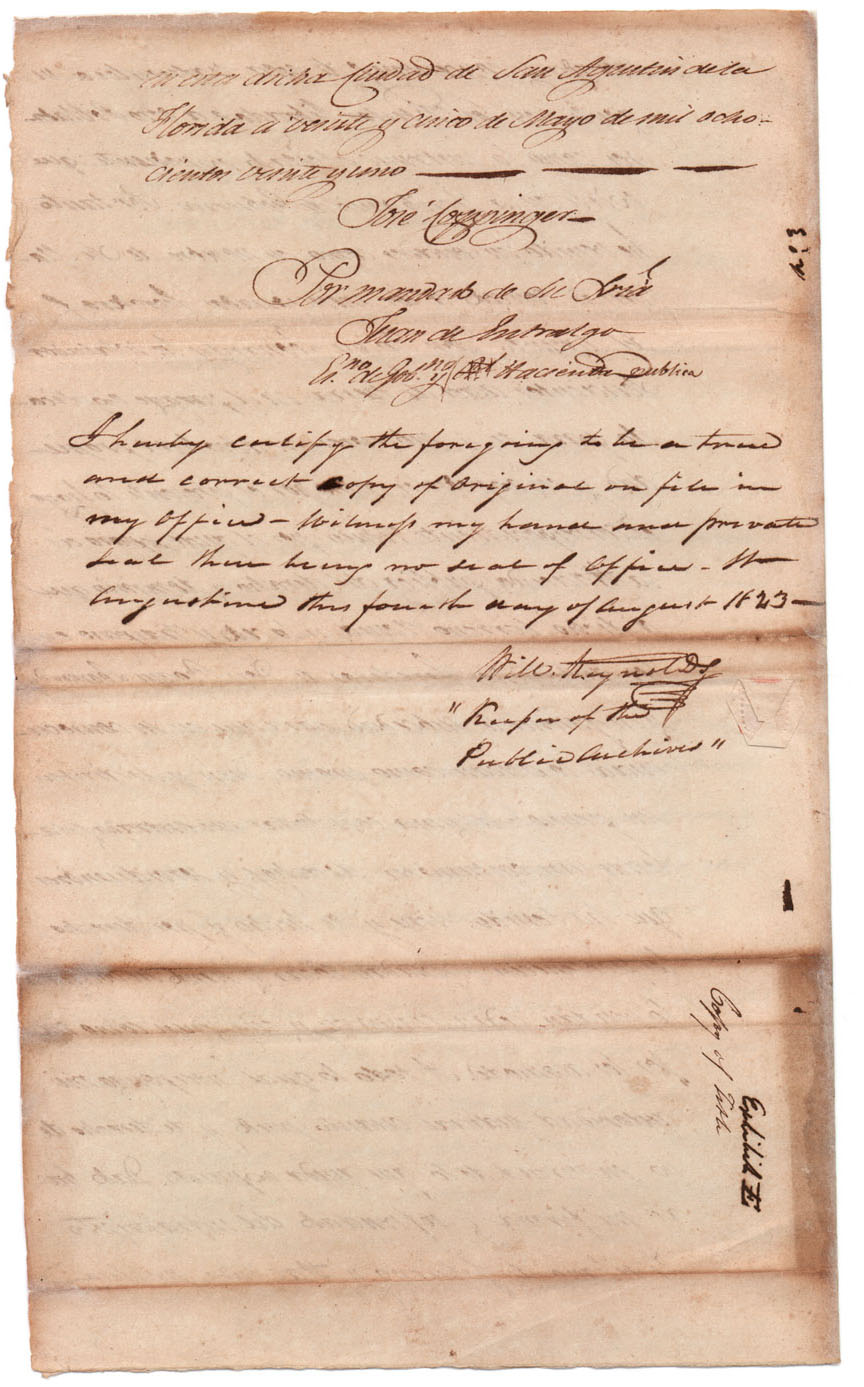 en esta dicha Ciudad de San Agustin de la
Florida à veinte y cinco de Mayo de mil ocho-
cientos veinte y uno
José Coppinger
Por mandado de Su Sría
Juan de Entralgo
Es.no de Gob.no y Hacienda publica
I hereby certify the foregoing to be a true
and correct copy of Original on file in
my Office - Witness my hand and private
seal there being no seal of Office - St
Augustine this fourth day of August 1823 -
Will. Reynolds
"Keeper of the
Public Archives"
Copy of Title
Exhibit